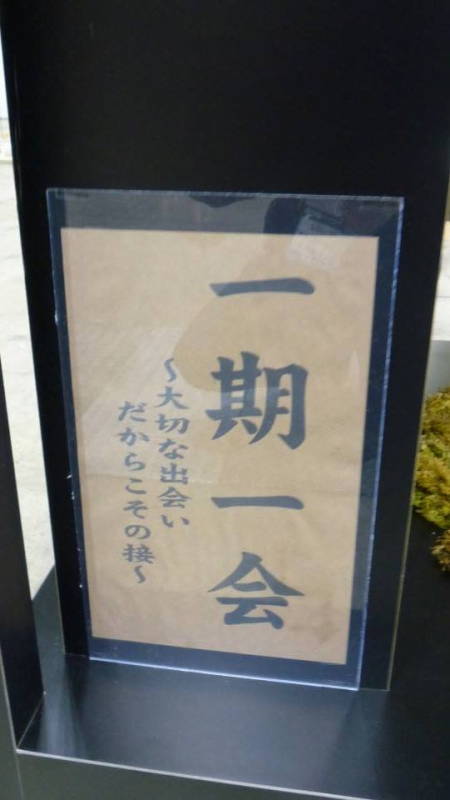 一期一会
〜大切な出会い
だからこその接〜